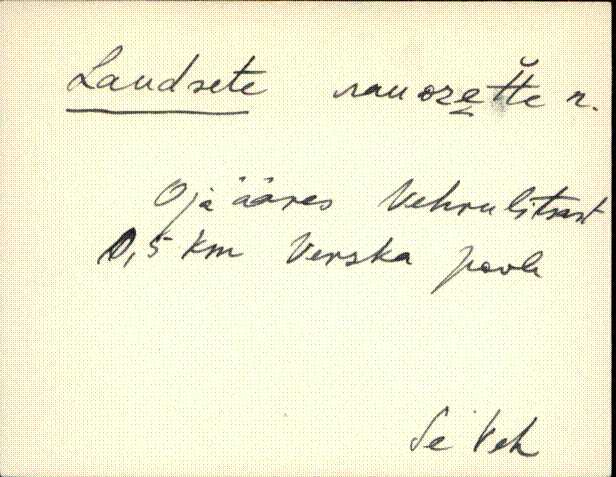 Laudsete rauozet̆te n.
Oja ääres Vehrulitsast
0,5 km Verska poole
Se Veh